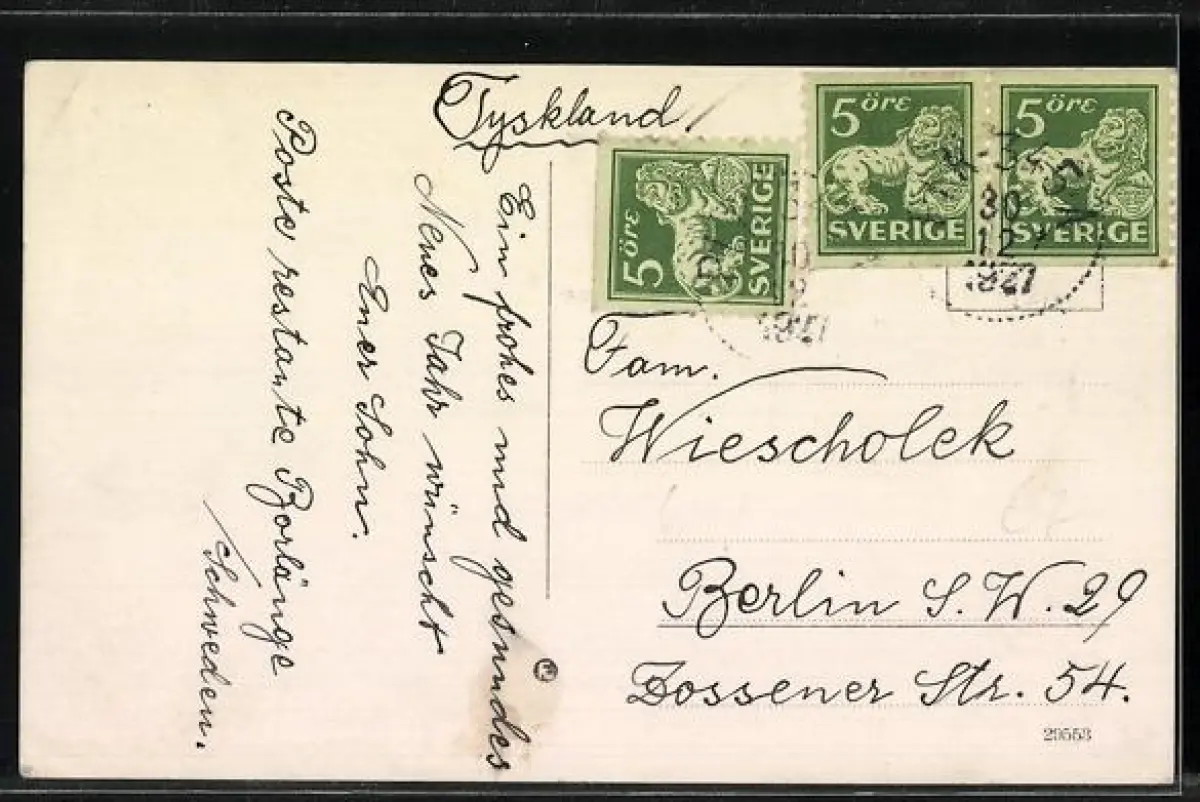 Tyskland.
5 öre
SVERIGE
5 öre
SVERIGE
5 öre
SVERIGE
30
12
1927
Ein frohes und gesundes
Neues Jahr wünscht
Euer Sohn.
Poste restante Borlänge
Schweden.
Fam.
Wiescholek
Berlin S.W. 29
Zossener Str. 54.
29553